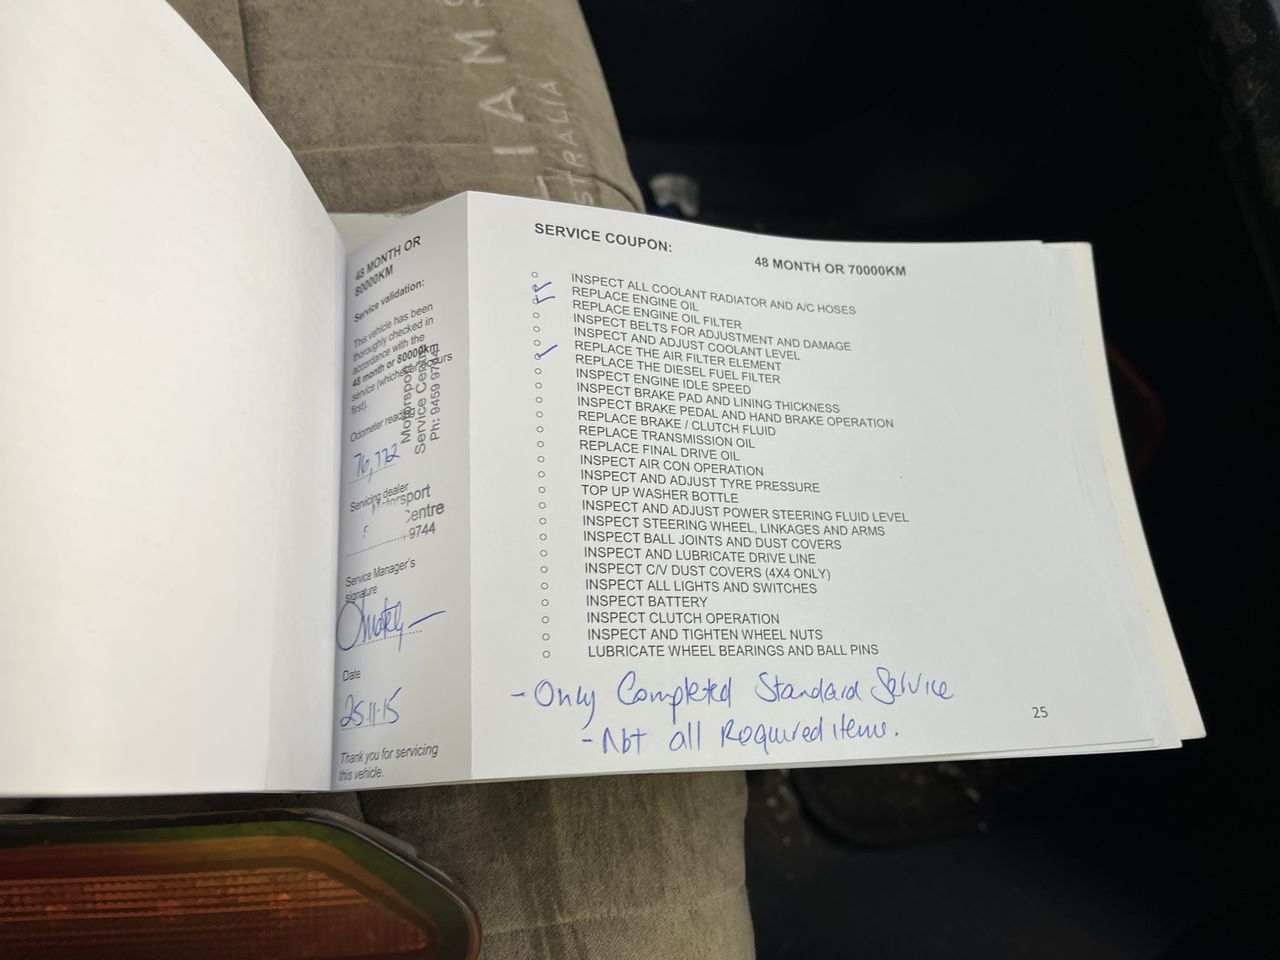 TIAMS
STRALIA
48 MONTH OR
80000KM
Service validation:
This vehicle has been
thoroughly checked in
accordance with the
48 month or 80000km
service (whichever occurs
first).
Motorsport
Service Centre
Ph: 9459 9744
Odometer reading
76,772
Servicing dealer
Motorsport
Centre
9744
Service Manager's
signature
Date
25.11.15
Thank you for servicing
this vehicle.
SERVICE COUPON:
48 MONTH OR 70000KM
INSPECT ALL COOLANT RADIATOR AND A/C HOSES
REPLACE ENGINE OIL
REPLACE ENGINE OIL FILTER
INSPECT BELTS FOR ADJUSTMENT AND DAMAGE
INSPECT AND ADJUST COOLANT LEVEL
REPLACE THE AIR FILTER ELEMENT
REPLACE THE DIESEL FUEL FILTER
INSPECT ENGINE IDLE SPEED
INSPECT BRAKE PAD AND LINING THICKNESS
INSPECT BRAKE PEDAL AND HAND BRAKE OPERATION
REPLACE BRAKE / CLUTCH FLUID
REPLACE TRANSMISSION OIL
REPLACE FINAL DRIVE OIL
INSPECT AIR CON OPERATION
INSPECT AND ADJUST TYRE PRESSURE
TOP UP WASHER BOTTLE
INSPECT AND ADJUST POWER STEERING FLUID LEVEL
INSPECT STEERING WHEEL, LINKAGES AND ARMS
INSPECT BALL JOINTS AND DUST COVERS
INSPECT AND LUBRICATE DRIVE LINE
INSPECT C/V DUST COVERS (4X4 ONLY)
INSPECT ALL LIGHTS AND SWITCHES
INSPECT BATTERY
INSPECT CLUTCH OPERATION
INSPECT AND TIGHTEN WHEEL NUTS
LUBRICATE WHEEL BEARINGS AND BALL PINS
- Only Completed Standard Service
- Not all Required items.
25